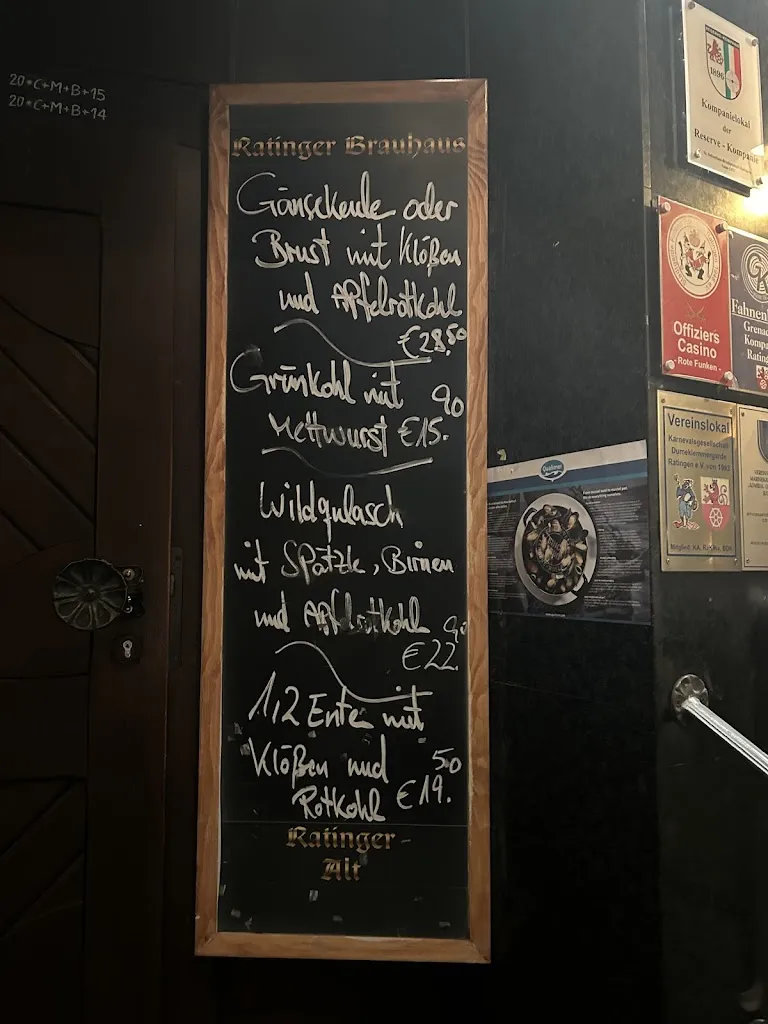 20*C+M+B+15
20*C+M+B+14
Ratinger Brauhaus
Gänsekeule oder
Brust mit Klößen
und Apfelrotkohl
€28.50
Grünkohl mit
Mettwurst €15.90
Wildgulasch
mit Spätzle, Birnen
und Apfelrotkohl
€22.90
1,2 Ente mit
Klößen und
Rotkohl €19.50
Ratinger-
Alt
1896
Kompanielokal
der
Reserve-Kompanie
Offiziers
Casino
- Rote Funken -
Vereinslokal
Karnevalsgesellschaft
Dumeklemmergarde
Ratingen e.V. von 1993